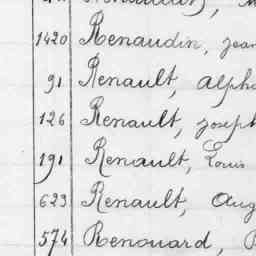 1420 Renaudin, Jean
91 Renault, Alpho
126 Renault, Joseph
191 Renault, Louis
623 Renault, Aug
574 Renouard,